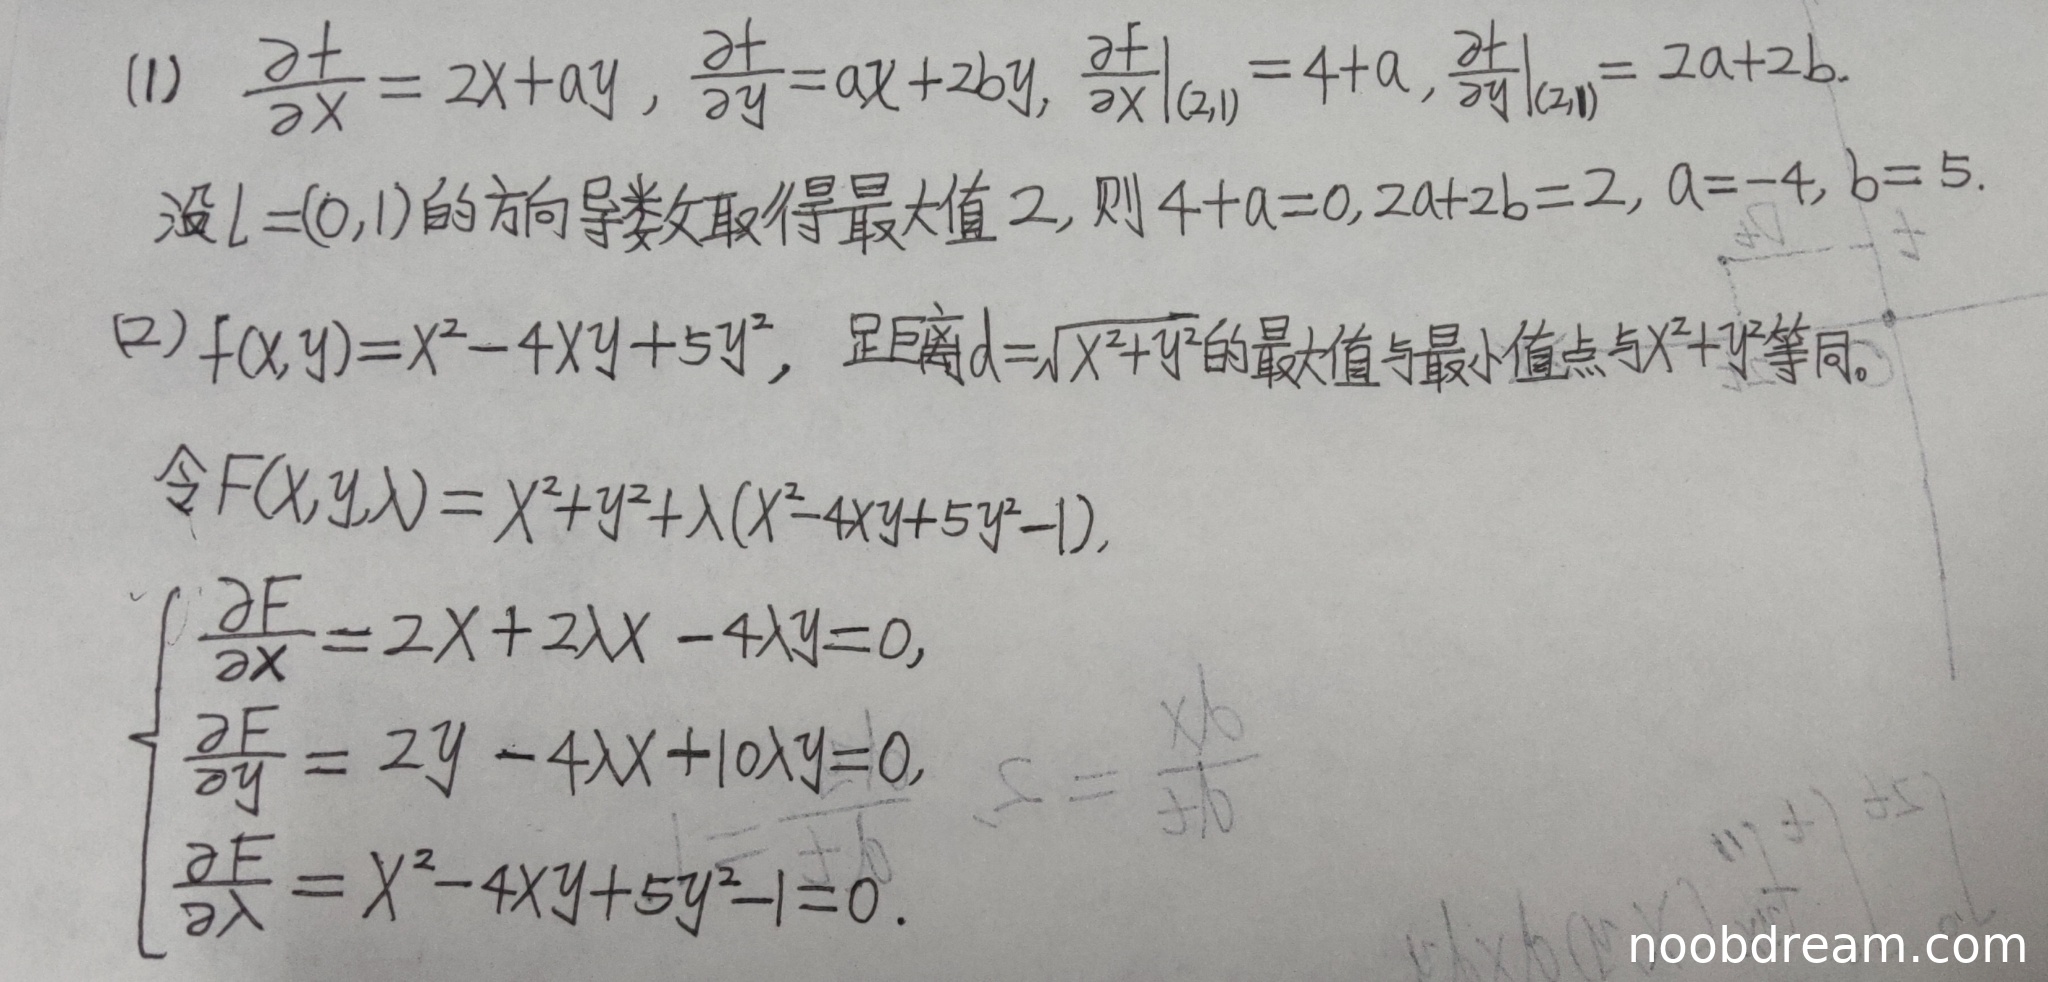 (1) ∂f/∂x = 2x+ay, ∂f/∂y = ax+2by, ∂f/∂x|(2,1) = 4+a, ∂f/∂y|(2,1) = 2a+2b.
沿l=(0,1)的方向导数取得最大值2, 则4+a=0, 2a+2b=2, a=-4, b=5.
(2) f(x,y)=x²-4xy+5y², 距离d=√(x²+y²)的最大值与最小值点与x²+y²等同。
令F(x,y,λ)=x²+y²+λ(x²-4xy+5y²-1),
∂F/∂x = 2x+2λx-4λy=0,
∂F/∂y = 2y-4λx+10λy=0,
∂F/∂λ = x²-4xy+5y²-1=0.
dx/dt = 2,
noobdream.com